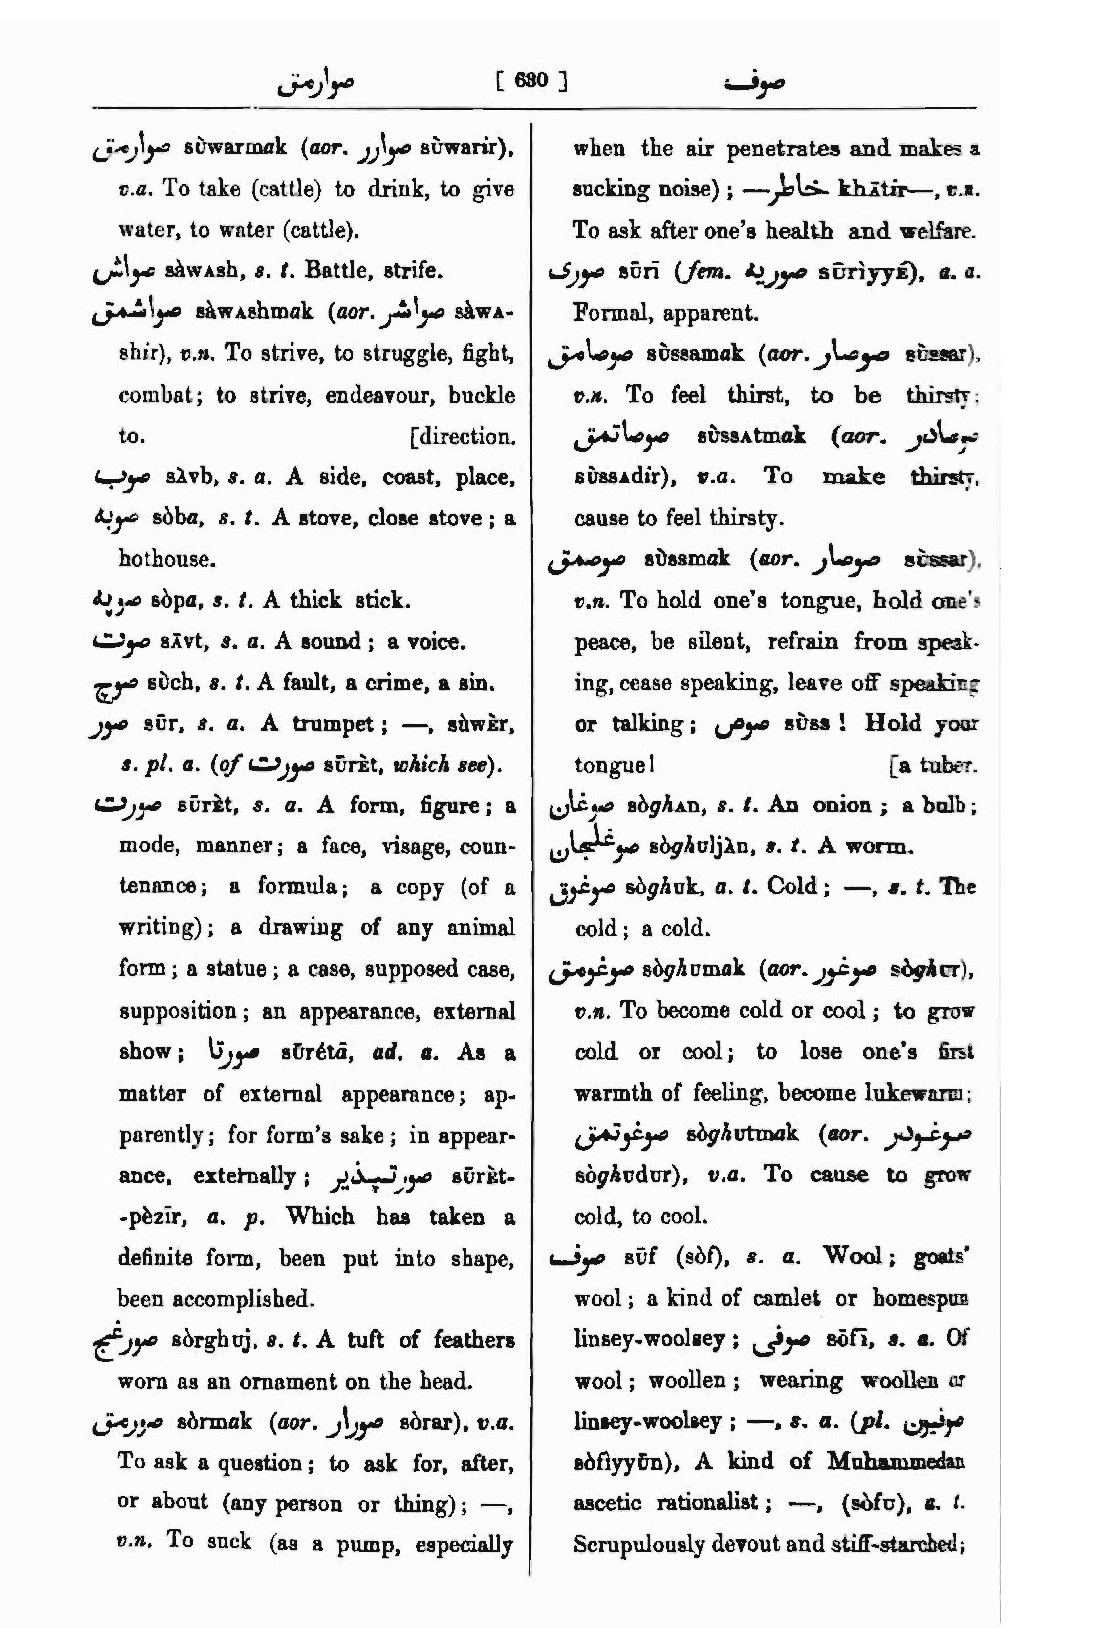 صوارمق [ 630 ] صوف
صوارمق sùwarmak (aor. صوارر sùwarir),
v.a. To take (cattle) to drink, to give
water, to water (cattle).
صواش sàwᴀsh, s. t. Battle, strife.
صواشمق sàwᴀshmak (aor. صواشر sàwᴀ-
shir), v.n. To strive, to struggle, fight,
combat; to strive, endeavour, buckle
to. [direction.
صوب sàvb, s. a. A side, coast, place,
صوبه sòba, s. t. A stove, close stove; a
hothouse.
صوپه sòpa, s. t. A thick stick.
صوت sāvt, s. a. A sound; a voice.
صوچ sùch, s. t. A fault, a crime, a sin.
صور sūr, s. a. A trumpet; —, sùwèr,
s. pl. a. (of صورت sūrèt, which see).
صورت sūrèt, s. a. A form, figure; a
mode, manner; a face, visage, coun-
tenance; a formula; a copy (of a
writing); a drawing of any animal
form; a statue; a case, supposed case,
supposition; an appearance, external
show; صورتا sūrétā, ad. a. As a
matter of external appearance; ap-
parently; for form's sake; in appear-
ance, externally; صورتپذير sūrèt-
-pèzīr, a. p. Which has taken a
definite form, been put into shape,
been accomplished.
صورغج sòrghuj, s. t. A tuft of feathers
worn as an ornament on the head.
صورمق sòrmak (aor. صورار sòrar), v.a.
To ask a question; to ask for, after,
or about (any person or thing); —,
v.n. To suck (as a pump, especially
when the air penetrates and makes a
sucking noise); —خاطر khātir—, v.a.
To ask after one's health and welfare.
صوری sūrī (fem. صوريه sūrìyyé), a. a.
Formal, apparent.
صوصامق sùssamak (aor. صوصار sùssar),
v.n. To feel thirst, to be thirsty;
صوصاتمق sùssᴀtmak (aor. صوصادر
sùssᴀdir), v.a. To make thirsty,
cause to feel thirsty.
صوصمق sùssmak (aor. صوصار sùssar),
v.n. To hold one's tongue, hold one's
peace, be silent, refrain from speak-
ing, cease speaking, leave off speaking
or talking; صوص sùss! Hold your
tongue! [a tuber.
صوغان sòghᴀn, s. t. An onion; a bulb;
صوغلجان sòghuljàn, s. t. A worm.
صوغوق sòghuk, a. t. Cold; —, s. t. The
cold; a cold.
صوغومق sòghumak (aor. صوغور sòghur),
v.n. To become cold or cool; to grow
cold or cool; to lose one's first
warmth of feeling, become lukewarm;
صوغوتمق sòghutmak (aor. صوغودر
sòghudur), v.a. To cause to grow
cold, to cool.
صوف sūf (sòf), s. a. Wool; goats'
wool; a kind of camlet or homespun
linsey-woolsey; صوفی sōfī, s. a. Of
wool; woollen; wearing woollen or
linsey-woolsey; —, s. a. (pl. صوفيون
sòfìyyūn), A kind of Muhammedan
ascetic rationalist; —, (sòfu), a. t.
Scrupulously devout and stiff-starched;